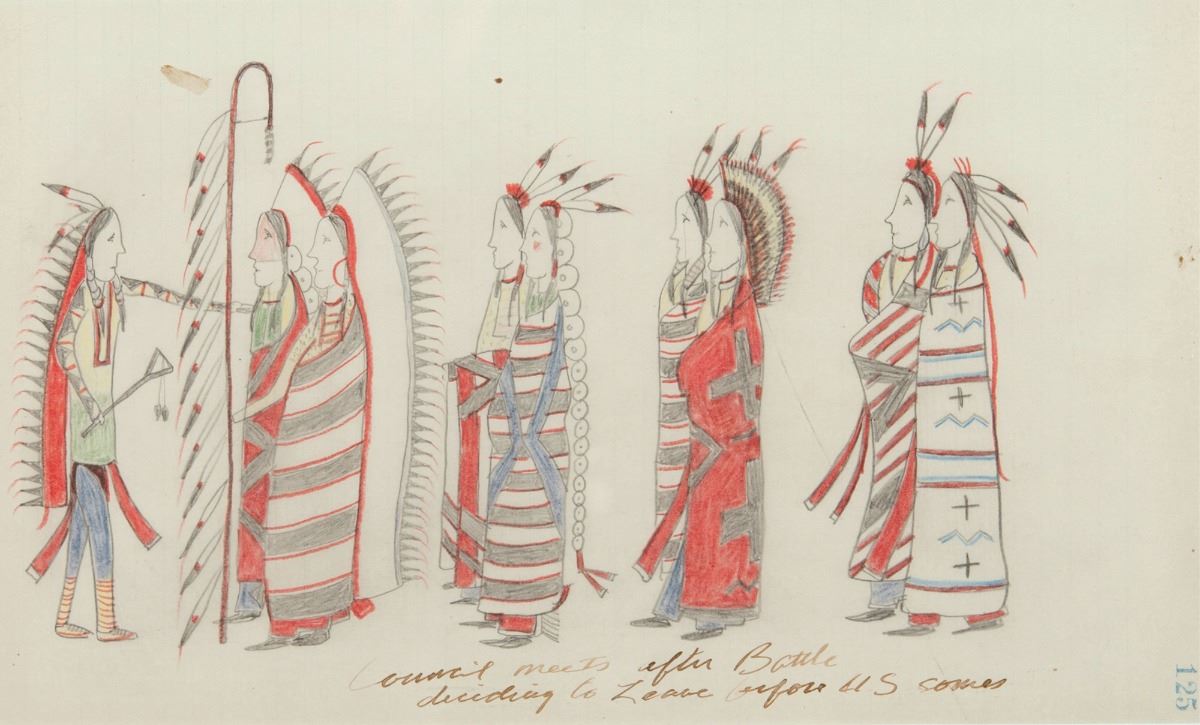 Council meets after Battle
deciding to Leave before US comes
125